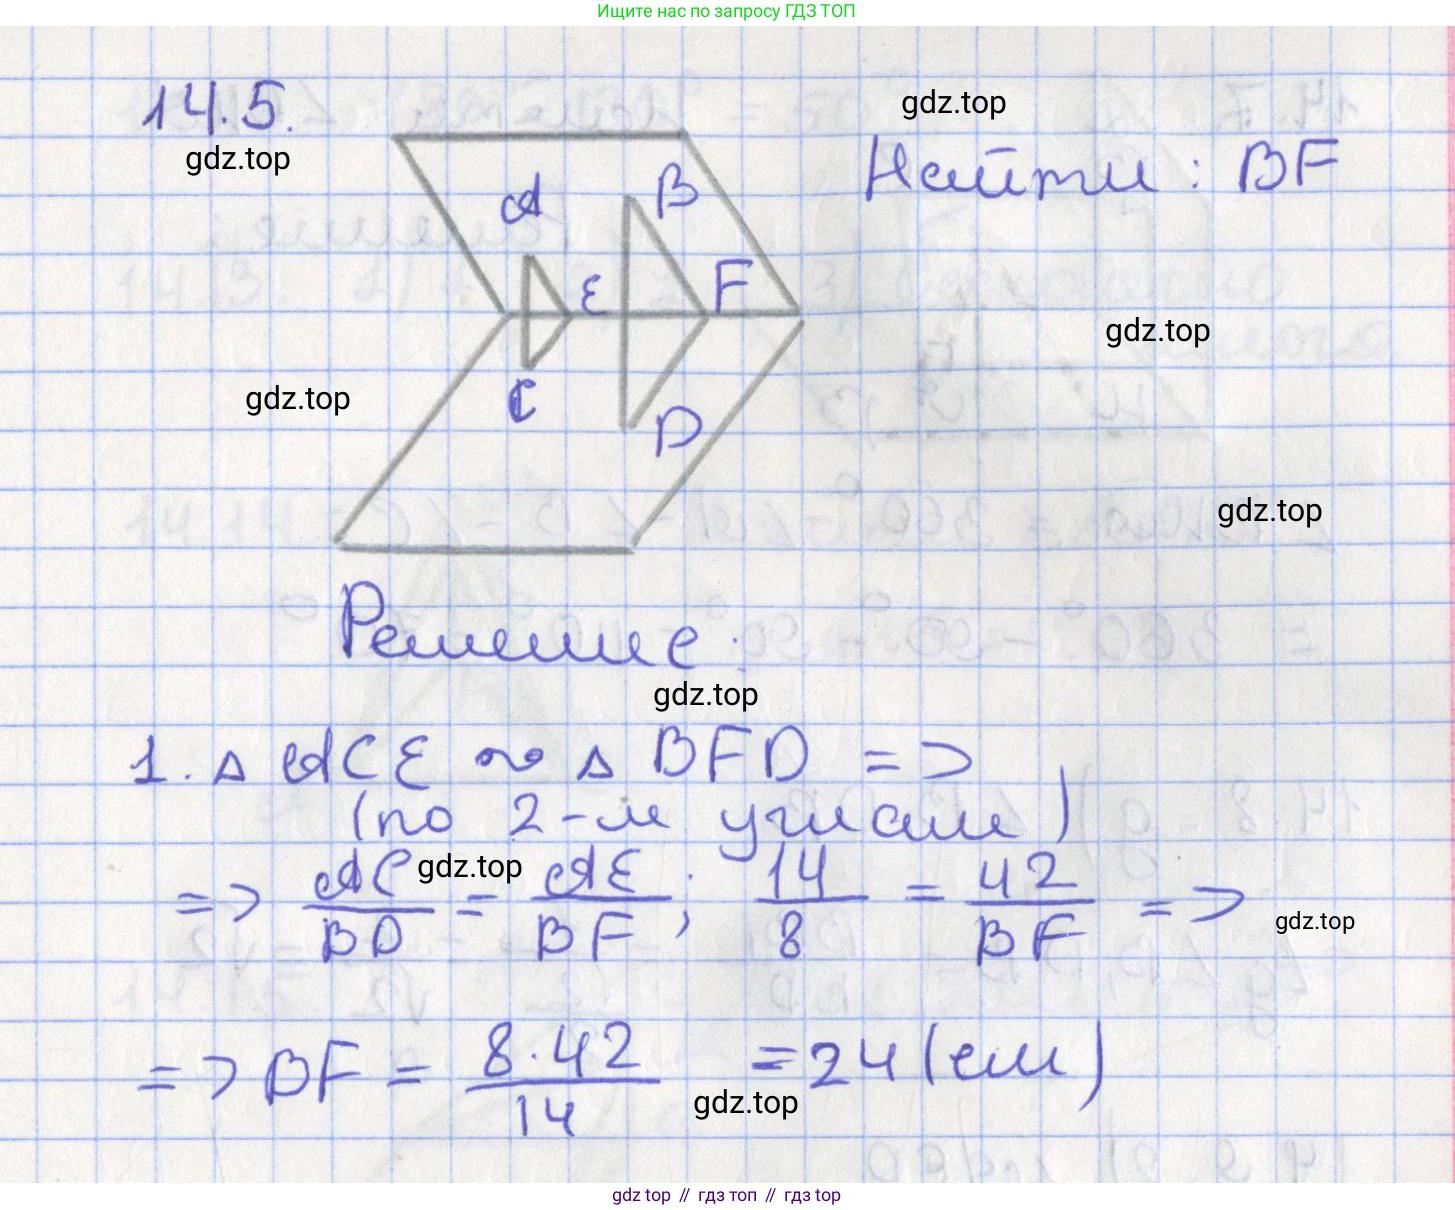 Ищите нас по запросу ГДЗ ТОП
14.5.
gdz.top
gdz.top
Найти: BF
A
B
E
F
gdz.top
gdz.top
C
D
gdz.top
Решение:
gdz.top
1. Δ ACE ∾ Δ BFD =>
(по 2-м углам)
=> AC/BD = AE/BF; 14/8 = 42/BF =>
gdz.top
gdz.top
=> BF = 8·42/14 = 24 (см)
gdz.top
gdz top // гдз топ // гдз top